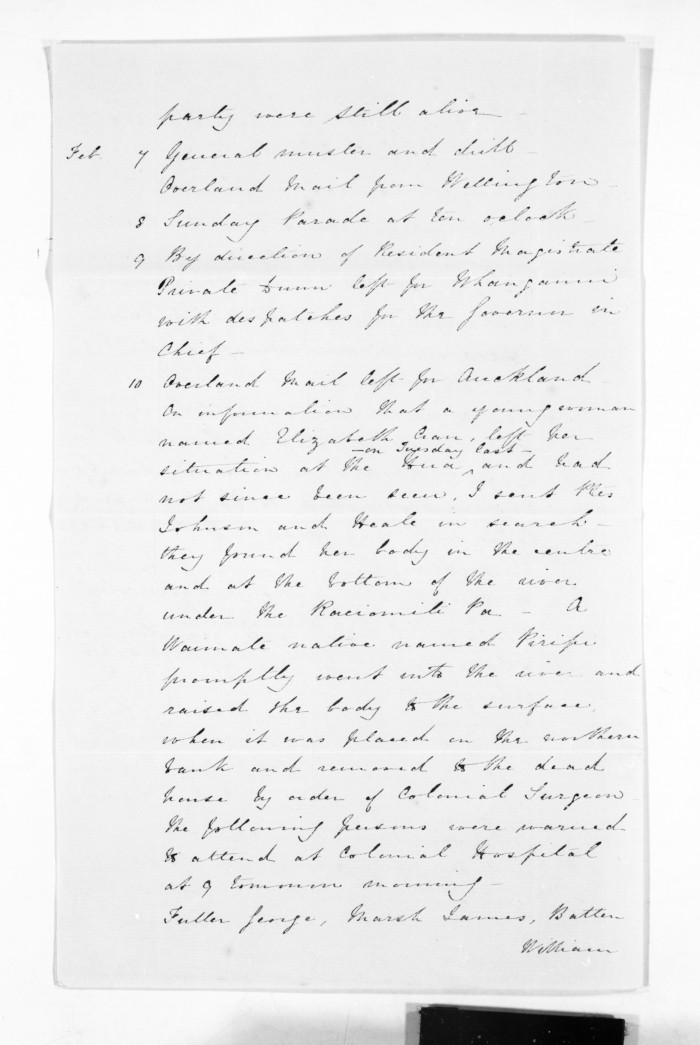 party were still alive –
Feb. 7 General muster and drill –
Overland Mail from Wellington –
8 Sunday Parade at ten oclock –
9 By direction of Resident Magistrate
Private Dunn left for Whanganui
with despatches for the Governor in
Chief –
10 Overland Mail left for Auckland
On information that a young woman
named Elizabeth left her
– on Tuesday last –
situation at the Hua, and had
not since been seen, I sent Ptes
Johnson and Heale in search –
they found her body in the centre
and at the bottom of the river
under the Pa – A
Waimate native named Piripi
promptly went into the river and
raised the body to the surface
when it was placed on the northern
bank and removed to the dead
house by order of Colonial Surgeon
The following persons were warned
to attend at Colonial Hospital
at 9 tomorrow morning –
Fuller George, Marsh James, Batten
William